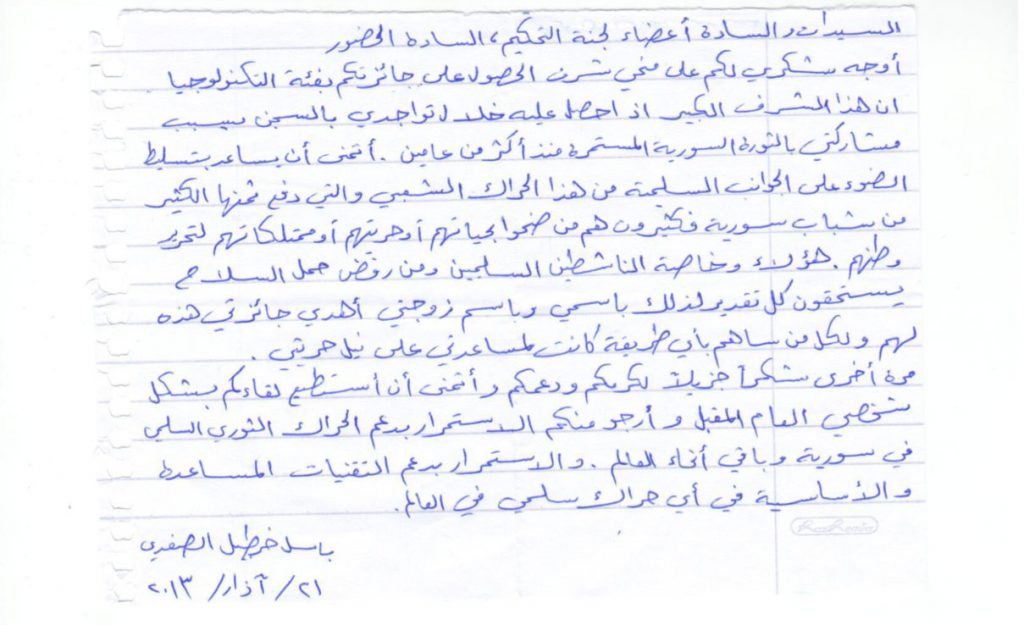 السيدات والسادة أعضاء لجنة التحكيم، السادة الحضور
أوجه شكري لكم على منحي شرف الحصول على جائزتكم بفئة التكنولوجيا
ان هذا المشرف الكبير اذ احصل عليه خلال تواجدي بالسجن بسبب
مشاركتي بالثورة السورية المستمرة منذ أكثر من عامين . أتمنى أن يساعد بتسليط
الضوء على الجوانب السلمية من هذا الحراك الشعبي والتي دفع ثمنها الكثير
من شباب سورية فكثيرون هم من ضحوا بحياتهم أو حريتهم أو ممتلكاتهم لتحرير
وطنهم . هؤلاء وخاصة الناشطين السلميين ومن رفض حمل السلاح
يستحقون كل تقدير لذلك باسمي وباسم زوجتي أهدي جائزتي هذه
لهم ولكل من ساهم بأي طريقة كانت لمساعدتي على نيل حريتي .
مرة أخرى شكراً جزيلاً لكريمكم ودعمكم وأتمنى أن أستطيع لقاءكم بشكل
شخصي العام المقبل وأرجو منكم الاستمرار بدعم الحراك الثوري السلمي
في سورية وباقي أنحاء العالم . والاستمرار بدعم التقنيات المساعدة
والأساسية في أي حراك سلمي في العالم.
باسل خرطبيل الصفدي
٢١/آذار/٢٠١٣